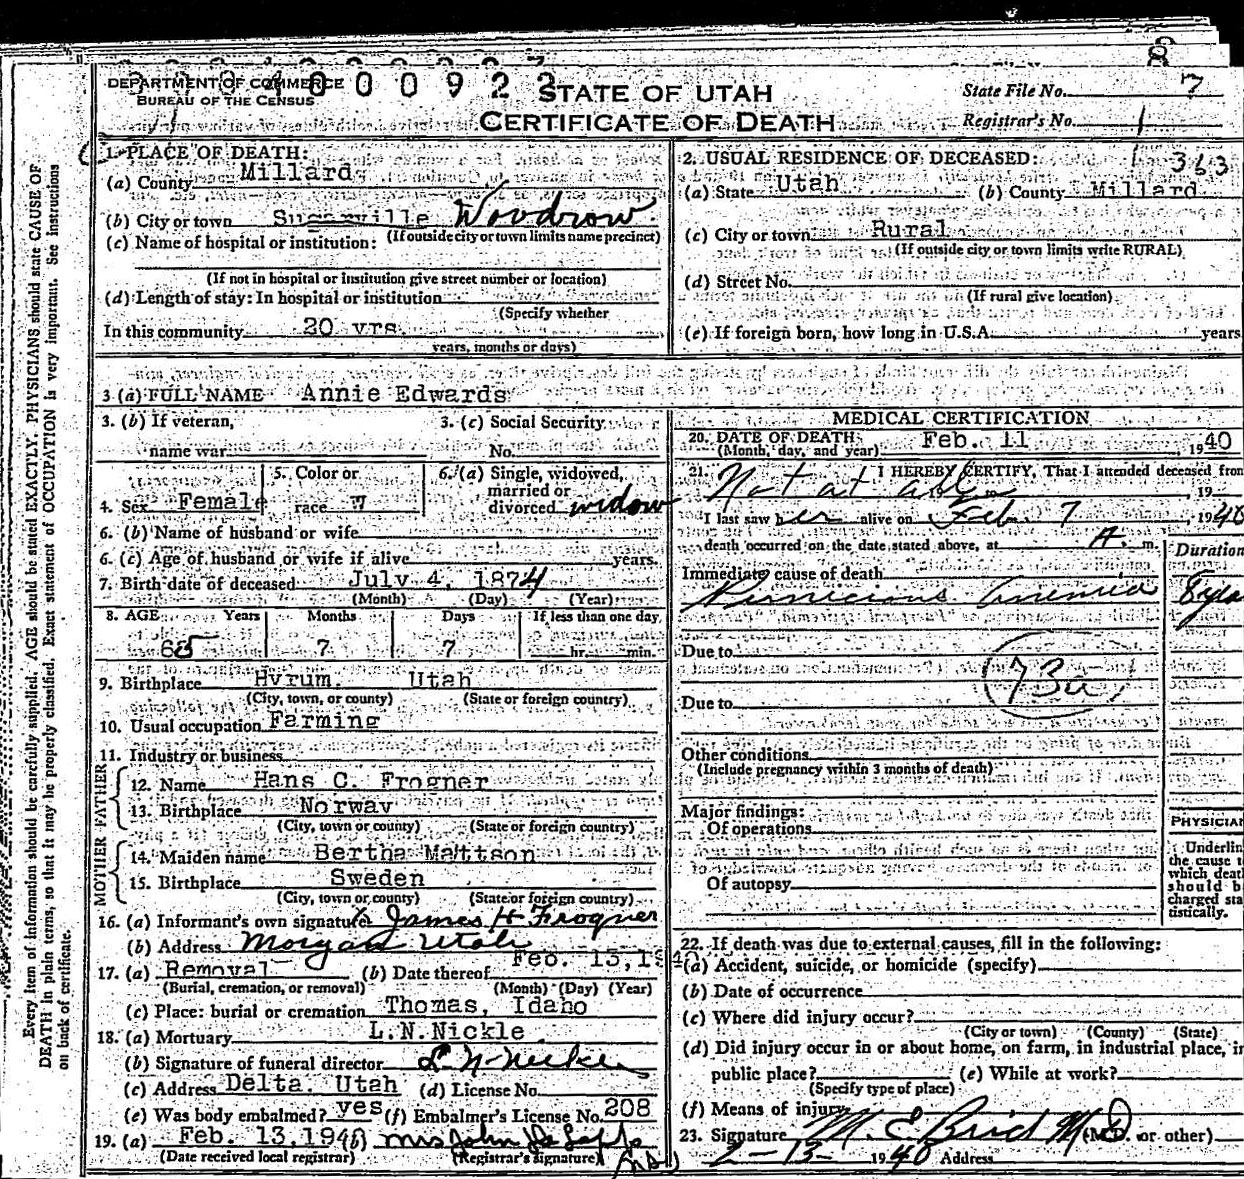 DEPARTMENT OF COMMERCE
BUREAU OF THE CENSUS
0 0 0 9 2 2
STATE OF UTAH
CERTIFICATE OF DEATH
State File No. 7
Registrar's No. 1
363
Every item of information should be carefully supplied. AGE should be stated EXACTLY. PHYSICIANS should state CAUSE OF
DEATH in plain terms, so that it may be properly classified. Exact statement of OCCUPATION is very important. See instructions
on back of certificate.
1. PLACE OF DEATH:
(a) County Millard
(b) City or town Sugarville Woodrow
(If outside city or town limits name precinct)
(c) Name of hospital or institution:
(If not in hospital or institution give street number or location)
(d) Length of stay: In hospital or institution
(Specify whether
In this community 20 yrs
years, months or days)
2. USUAL RESIDENCE OF DECEASED:
(a) State Utah (b) County Millard
(c) City or town Rural
(If outside city or town limits write RURAL)
(d) Street No.
(If rural give location)
(e) If foreign born, how long in U.S.A. years
3 (a) FULL NAME Annie Edwards
3. (b) If veteran, name war
3. (c) Social Security No.
4. Sex Female
5. Color or race W
6. (a) Single, widowed, married or divorced widow
6. (b) Name of husband or wife
6. (c) Age of husband or wife if alive years.
7. Birth date of deceased July 4, 1874
(Month) (Day) (Year)
8. AGE Years Months Days If less than one day
65 7 7 hr. min.
9. Birthplace Hyrum, Utah
(City, town, or county) (State or foreign country)
10. Usual occupation Farming
11. Industry or business
FATHER
12. Name Hans C. Frogner
13. Birthplace Norway
(City, town or county) (State or foreign country)
MOTHER
14. Maiden name Bertha Mattson
15. Birthplace Sweden
(City, town or county) (State or foreign country)
16. (a) Informant's own signature James H Frogner
(b) Address Morgan Utah
17. (a) Removal (b) Date thereof Feb. 13, 1940
(Burial, cremation, or removal) (Month) (Day) (Year)
(c) Place: burial or cremation Thomas, Idaho
18. (a) Mortuary L.N.Nickle
(b) Signature of funeral director L N Nickle
(c) Address Delta, Utah (d) License No.
(e) Was body embalmed? yes (f) Embalmer's License No. 208
19. (a) Feb. 13, 194 (b) Mrs John
(Date received local registrar) (Registrar's signature)
MEDICAL CERTIFICATION
20. DATE OF DEATH: Feb. 11 1940
(Month, day, and year)
21. I HEREBY CERTIFY, That I attended deceased from
Not at able 19
I last saw her alive on Feb. 7 1940
death occurred on the date stated above, at A. m.
Duration
Immediate cause of death
Pernicious Anemia
Due to
73a
Due to
Other conditions
(Include pregnancy within 3 months of death)
Major findings:
Of operations
Of autopsy
PHYSICIAN
Underline
the cause t
which deat
should b
charged sta
tistically.
22. If death was due to external causes, fill in the following:
(a) Accident, suicide, or homicide (specify)
(b) Date of occurrence
(c) Where did injury occur?
(City or town) (County) (State)
(d) Did injury occur in or about home, on farm, in industrial place, in
public place? (e) While at work?
(Specify type of place)
(f) Means of injury
23. Signature M. E. Bird M D (M.D. or other)
2-13- 1940 Address